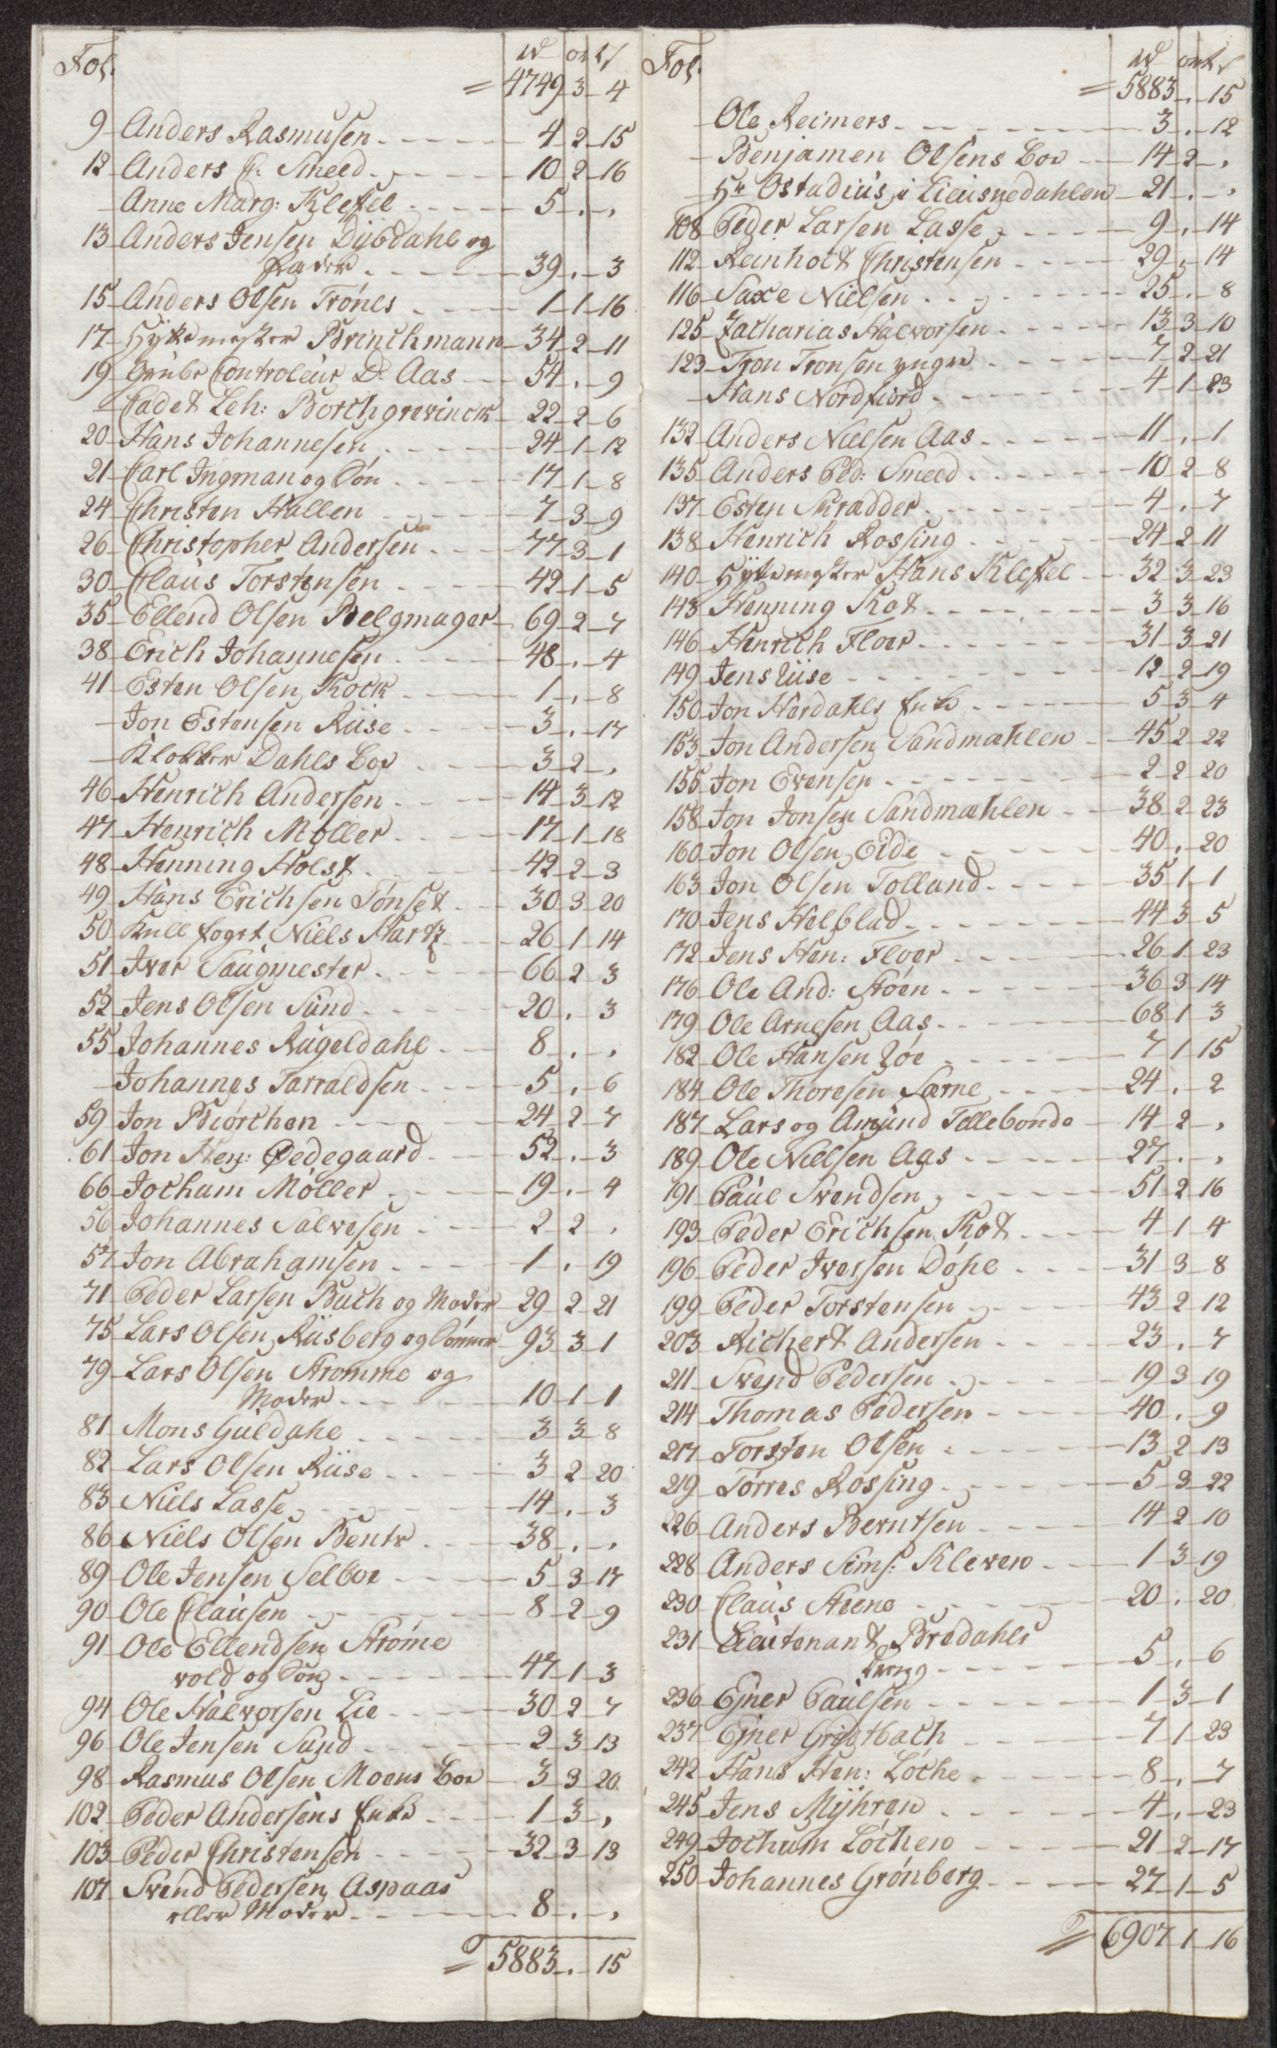 Fol.
4749 3 4
9 Anders Rasmusen 4 2 15
12 Anders P: Smeed 10 2 16
Anne Marg: Klefel 5 . .
13 Anders Jensen Dybdahl og
Fader 39 . 3
15 Anders Olsen Trônes 1 1 16
17 Hyttemester Brinchmann 34 2 11
19 Grube Controleur D. Aas 54 . 9
Cadet Leh: Borchgrevinck 22 2 6
20 Hans Johannesen 24 1 12
21 Carl Ingman og Sôn 17 1 8
24 Christen Hallen 7 3 9
26 Christopher Andersen 77 3 1
30 Claus Torstensen 42 1 5
35 Ellend Olsen Belgmager 69 2 7
38 Erich Johannesen 48 . 4
41 Esten Olsen Kock 1 . 8
Jon Estensen Riise 3 . 17
Klokker Dahls Boe 3 2 .
46 Henrich Andersen 14 3 12
47 Henrich Møller 17 1 18
48 Henning Holst 42 2 3
49 Hans Erichsen Tônset 30 3 20
50 Kullfogt Niels Hartz 26 1 14
51 Iver Saugmester 66 2 3
52 Jens Olsen Sund 20 . 3
55 Johannes Rugeldahl 8 . .
Johannes Tarraldsen 5 . 6
59 Jon Biôrchen 24 2 7
61 Jon Hen: Ødegaard 52 . 3
66 Jocham Møller 19 . 4
56 Johannes Salvesen 2 2 .
57 Jon Abrahamsen 1 . 19
71 Peder Larsen Buch og Moder 29 2 21
75 Lars Olsen Riisberg og Sônner 93 3 1
79 Lars Olsen Strømme og
Moder 10 1 1
81 Mons Guldahl 3 3 8
82 Lars Olsen Riise 3 2 20
83 Niels Lasse 14 . 3
86 Niels Olsen Bentz 38 . .
89 Ole Jensen Selboe 5 3 17
90 Ole Clausen 8 2 9
91 Ole Ellendsen Strôme
vold og Sôn 47 1 3
94 Ole Halvorsen Lie 30 2 7
96 Ole Jensen Sund 2 3 13
98 Rasmus Olsen Moens Boe 3 3 20
102 Peder Andersens Enke 1 3 .
103 Peder Christensen 32 3 13
107 Svend Pedersen Aspaas
eller Moder 8 . .
5883 . 15
Fol.
5883 . 15
Ole Reimers 3 . 12
Benjamen Olsens Boe 14 2 .
Hr Ostadius i Liusnedahlen 21 . .
108 Peder Larsen Lasse 9 . 14
112 Reinholt Christensen 29 . 14
116 Saxe Nielsen 25 . 8
125 Zacharias Halvorsen 13 3 10
123 Tron Tronsen yngre 7 2 21
Hans Nordfiord 4 1 23
132 Anders Nielsen Aas 11 . 1
135 Anders Ped: Smeed 10 2 8
137 Esten Skradder 4 . 7
138 Henrich Rossing 24 2 11
140 Hyttemester Hans Klefel 32 3 23
143 Henning Kot 3 3 16
146 Henrich Floer 31 3 21
149 Jens Riise 12 2 19
150 Jon Hardahls Enke 5 3 4
153 Jon Andersen Sandmæhlen 45 2 22
155 Jon Evensen 2 2 20
158 Jon Jonsen Sandmæhlen 38 2 23
160 Jon Olsen Eide 40 . 20
163 Jon Olsen Tolland 35 1 1
170 Jens Helblad 44 3 5
172 Jens Hen: Floer 26 1 23
176 Ole And: Støen 36 3 14
179 Ole Arnesen Aas 68 1 3
182 Ole Hansen Røe 7 1 15
184 Ole Thoresen Særne 24 . 2
187 Lars og Amund Tellebonde 14 2 .
189 Ole Nielsen Aas 27 . .
191 Paul Svendsen 51 2 16
193 Peder Erichsen Kot 4 1 4
196 Peder Iversen Dôhl 31 3 8
199 Peder Torstensen 43 2 12
203 Richert Andersen 23 . 7
211 Svend Pedersen 19 3 19
214 Thomas Pedersen 40 . 9
217 Torsten Olsen 13 2 13
219 Tørres Rossing 5 3 22
226 Anders Berntsen 14 2 10
228 Anders Sims: Kleven 1 3 19
230 Claus Steene 20 . 20
231 Lieutenant Bredahls
Dreng 5 . 6
236 Ejner Paulsen 1 3 1
237 Ejner Gristbach 7 1 23
242 Hans Hen: Løche 8 . 7
245 Jens Mÿhren 4 . 23
249 Jochum Løchen 21 2 17
250 Johannes Grønberg 27 1 5
6907 1 16